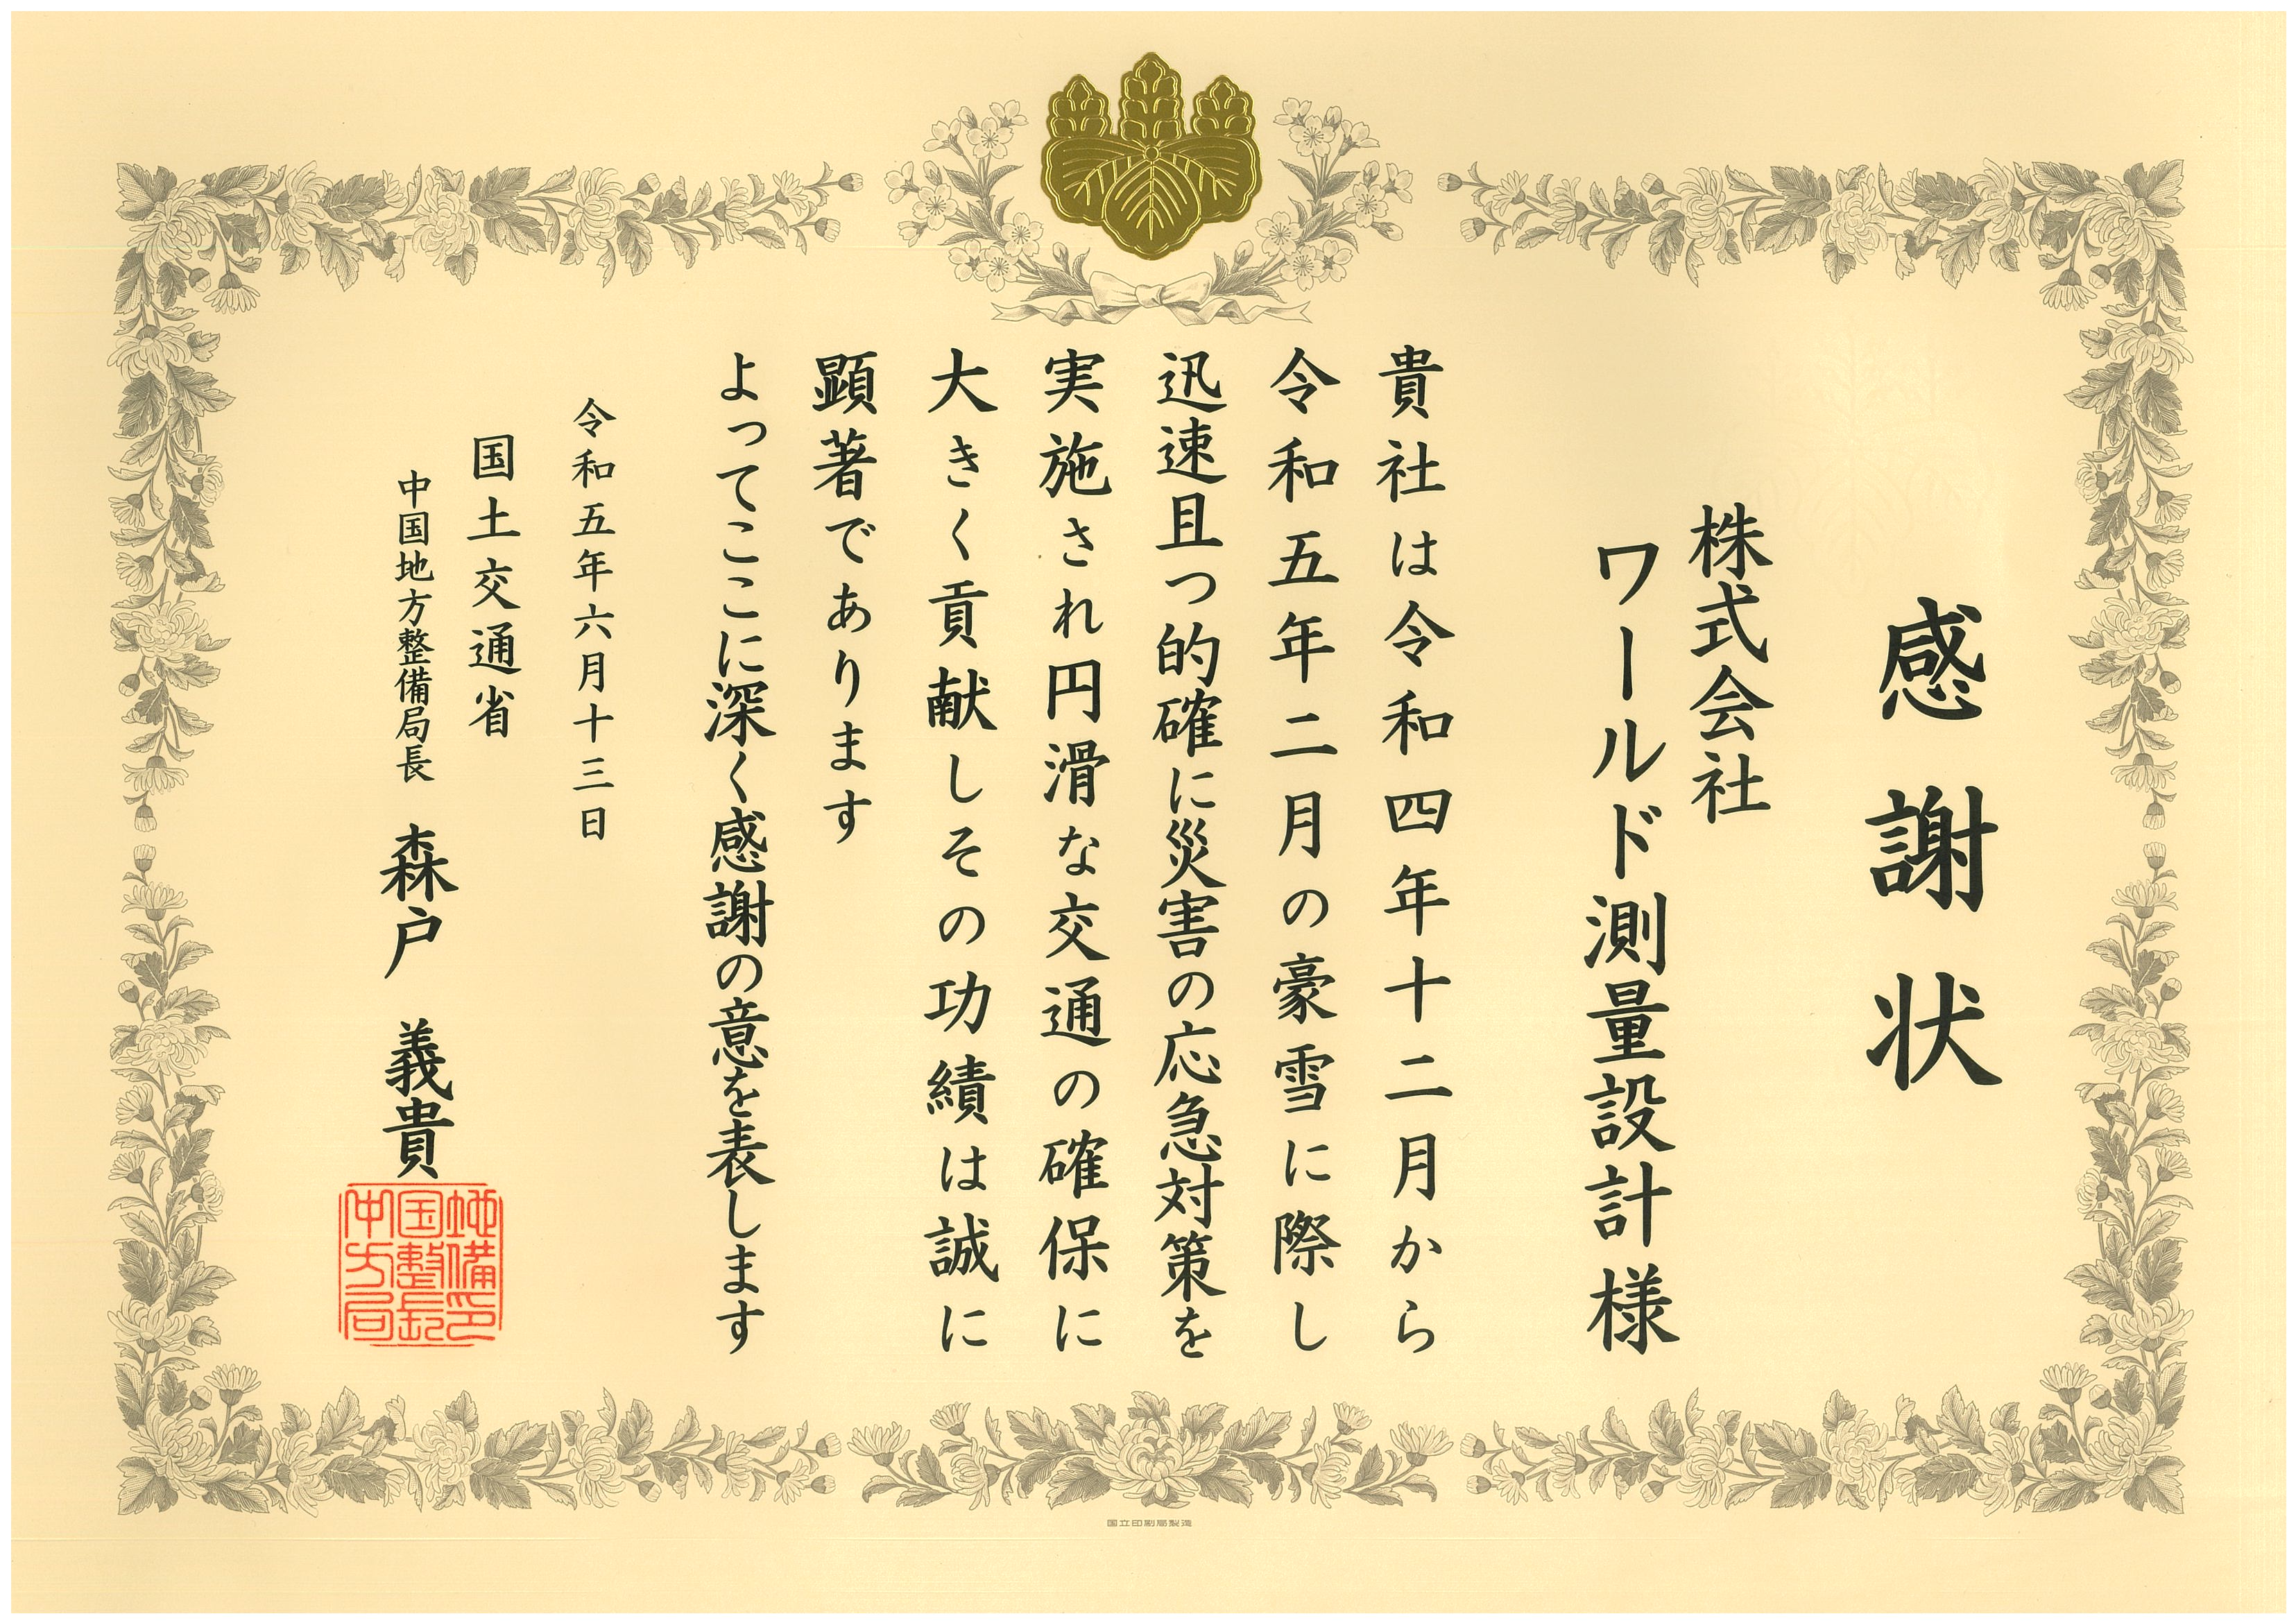 感謝状
株式会社
ワールド測量設計様
貴社は令和四年十二月から
令和五年二月の豪雪に際し
迅速且つ的確に災害の応急対策を
実施され円滑な交通の確保に
大きく貢献しその功績は誠に
顕著であります
よってここに深く感謝の意を表します
令和五年六月十三日
国土交通省
中国地方整備局長 森戸 義貴
中国地
方整備
局長印
国立印刷局製造